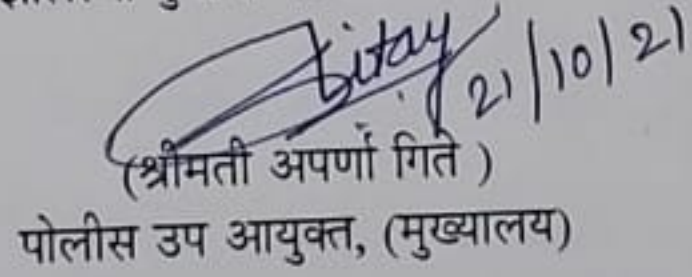 21/10/21
(श्रीमती अपर्णा गिते )
पोलीस उप आयुक्त, (मुख्यालय)